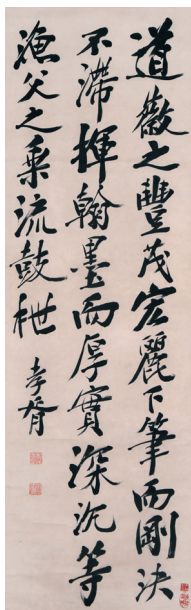 道薇之豐茂宏麗下筆而剛決
不滯揮翰墨而厚實深沉等
漁父之乗流鼓枻
孝胥